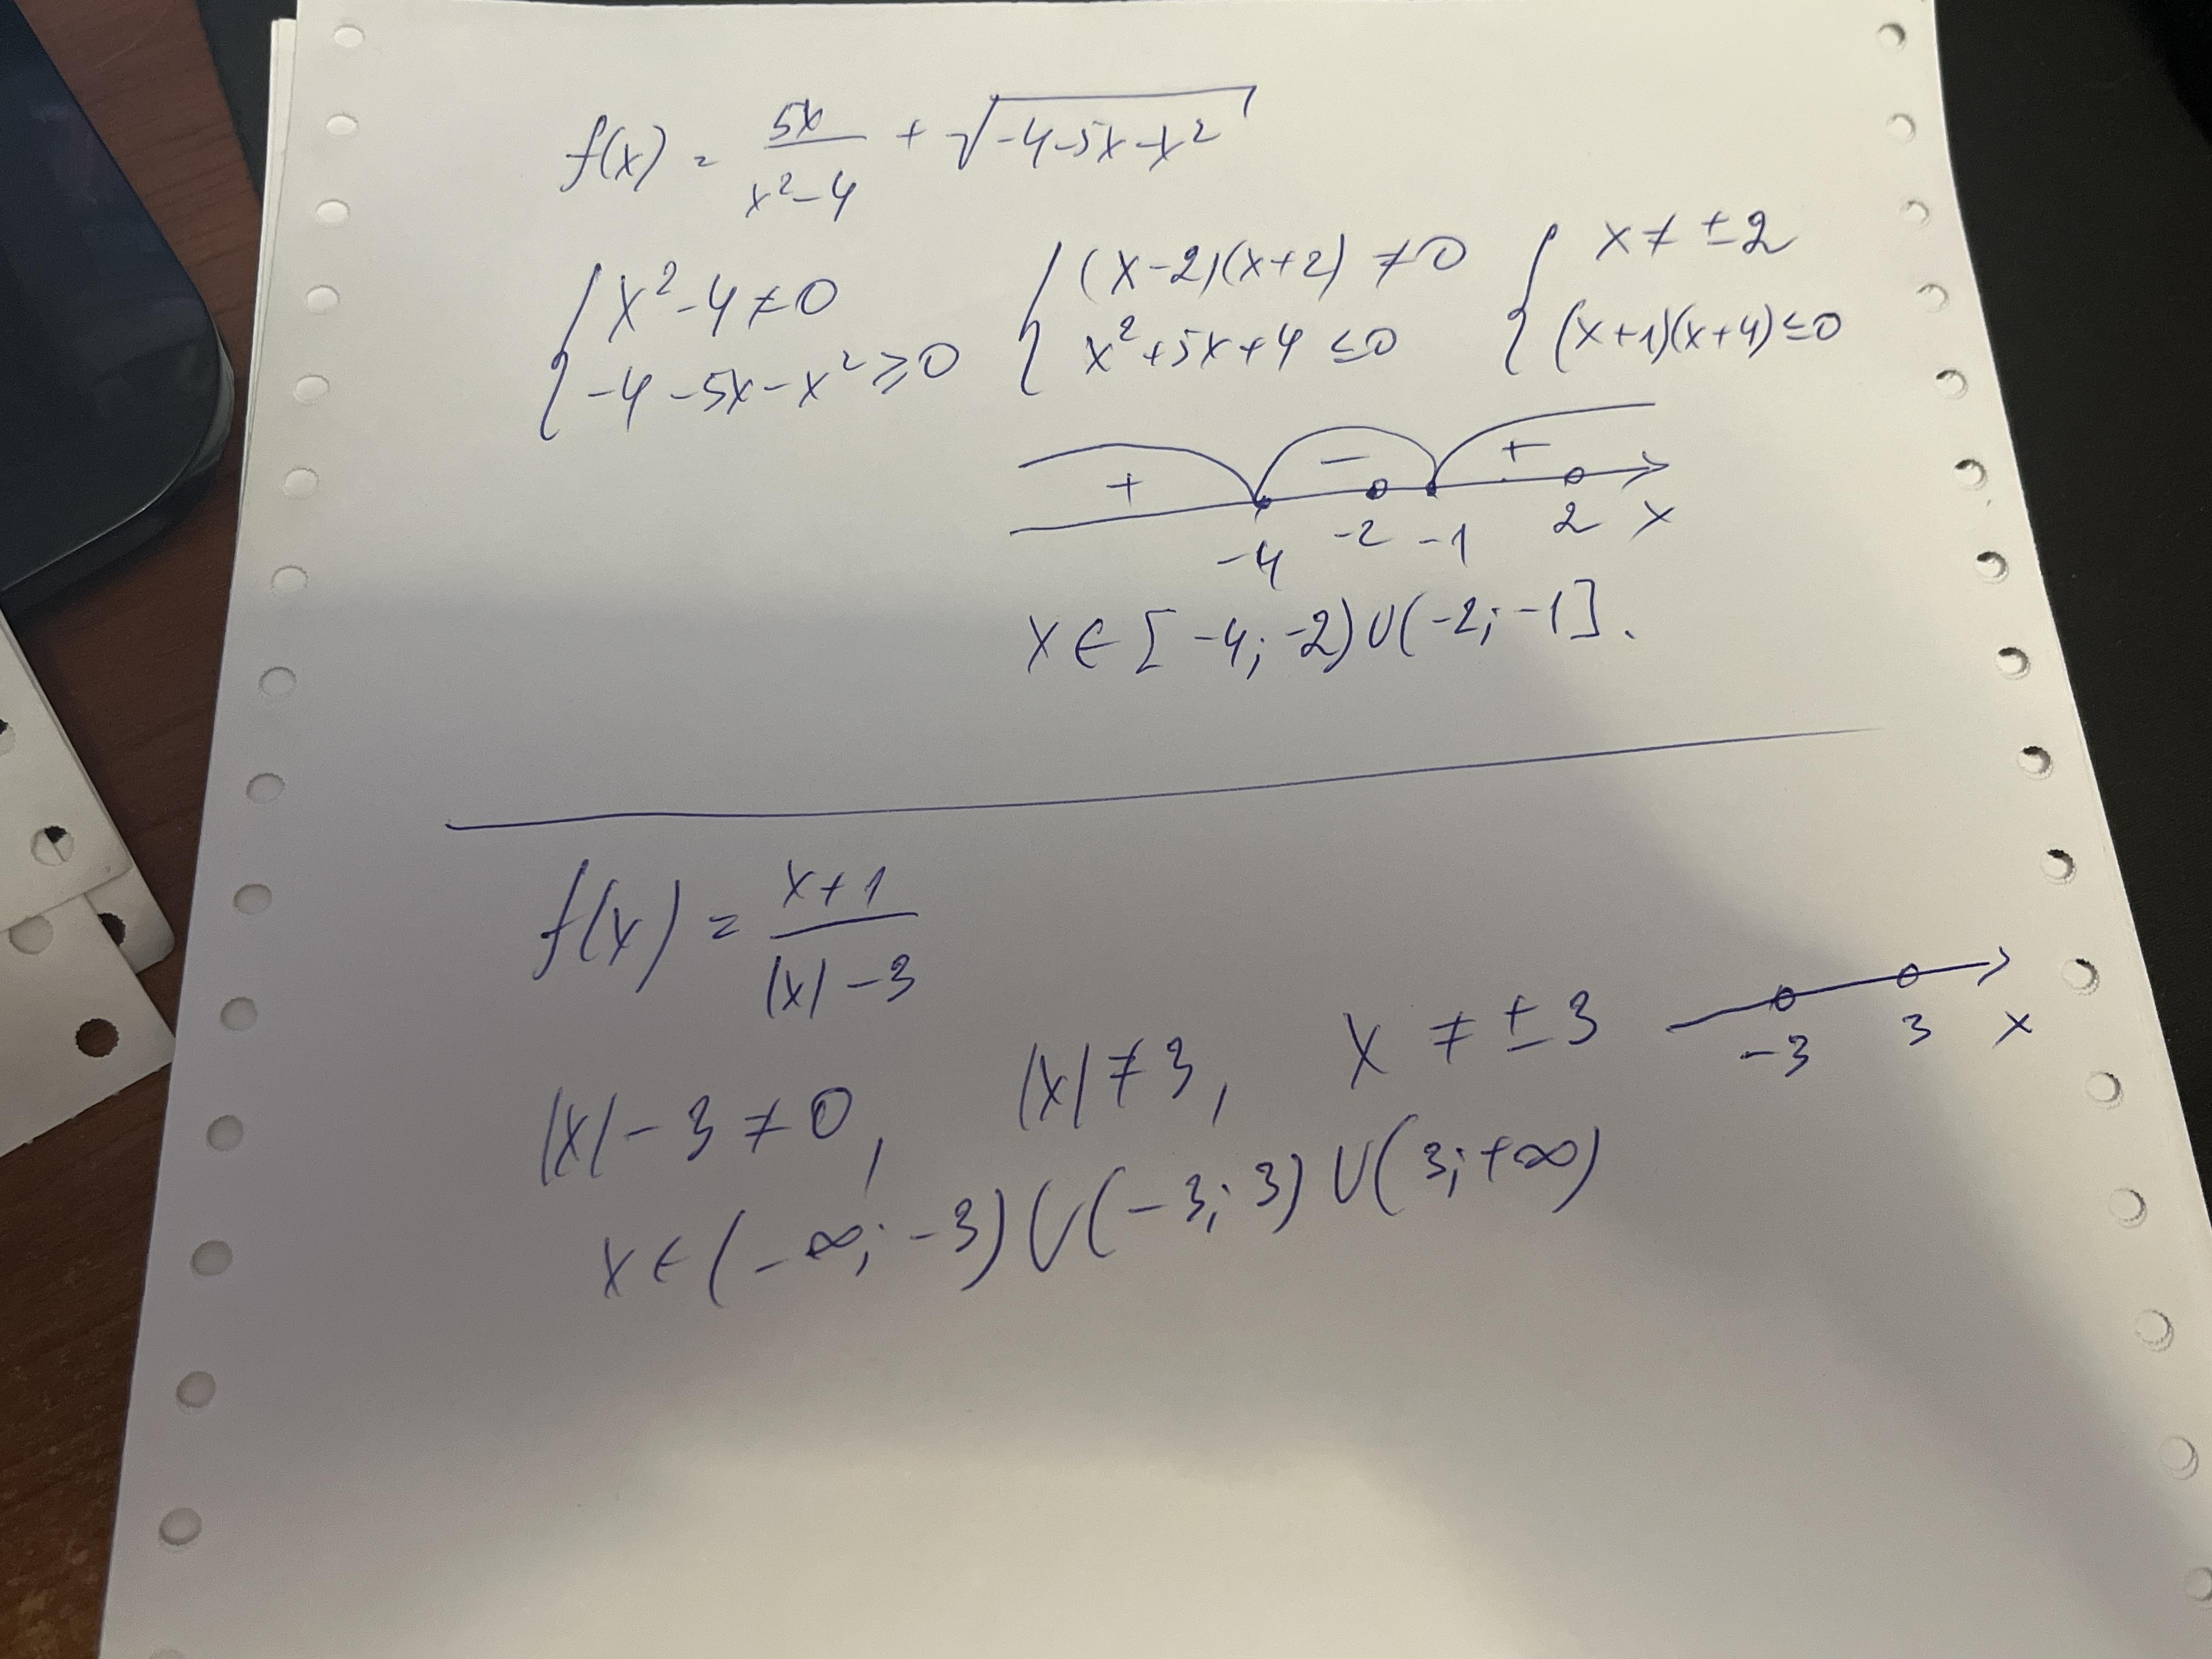 f(x) = 5x/(x²-4) + √(-4-5x-x²)
{ x²-4≠0 { (x-2)(x+2) ≠0 { x ≠ ±2
{ -4-5x-x²≥0 { x²+5x+4 ≤0 { (x+1)(x+4)≤0
+ − +
-4 -2 -1 2 x
x ∈ [-4; -2)∪(-2; -1].
f(x) = (x+1)/(|x|-3)
|x|-3≠0, |x|≠3, x ≠ ±3
-3 3 x
x∈(-∞; -3)∪(-3; 3)∪(3; +∞)